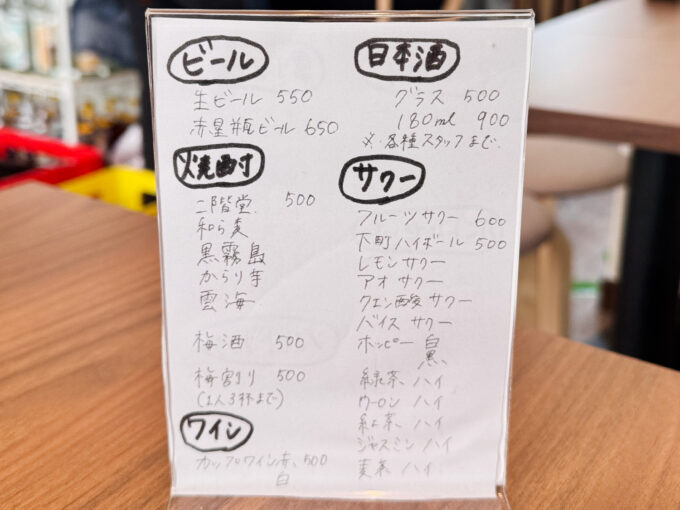 ビール
生ビール 550
赤星瓶ビール 650
焼酎
二階堂 500
和ら麦
黒霧島
からり芋
雲海
梅酒 500
梅割り 500
(1人3杯まで)
ワイン
カップワイン赤、500
白
日本酒
グラス 500
180ml 900
※各種スタッフまで
サワー
フルーツサワー 600
下町ハイボール 500
レモンサワー
アオサワー
クエン酸サワー
バイスサワー
ホッピー 白
黒
緑茶ハイ
ウーロンハイ
紅茶ハイ
ジャスミンハイ
麦茶ハイ